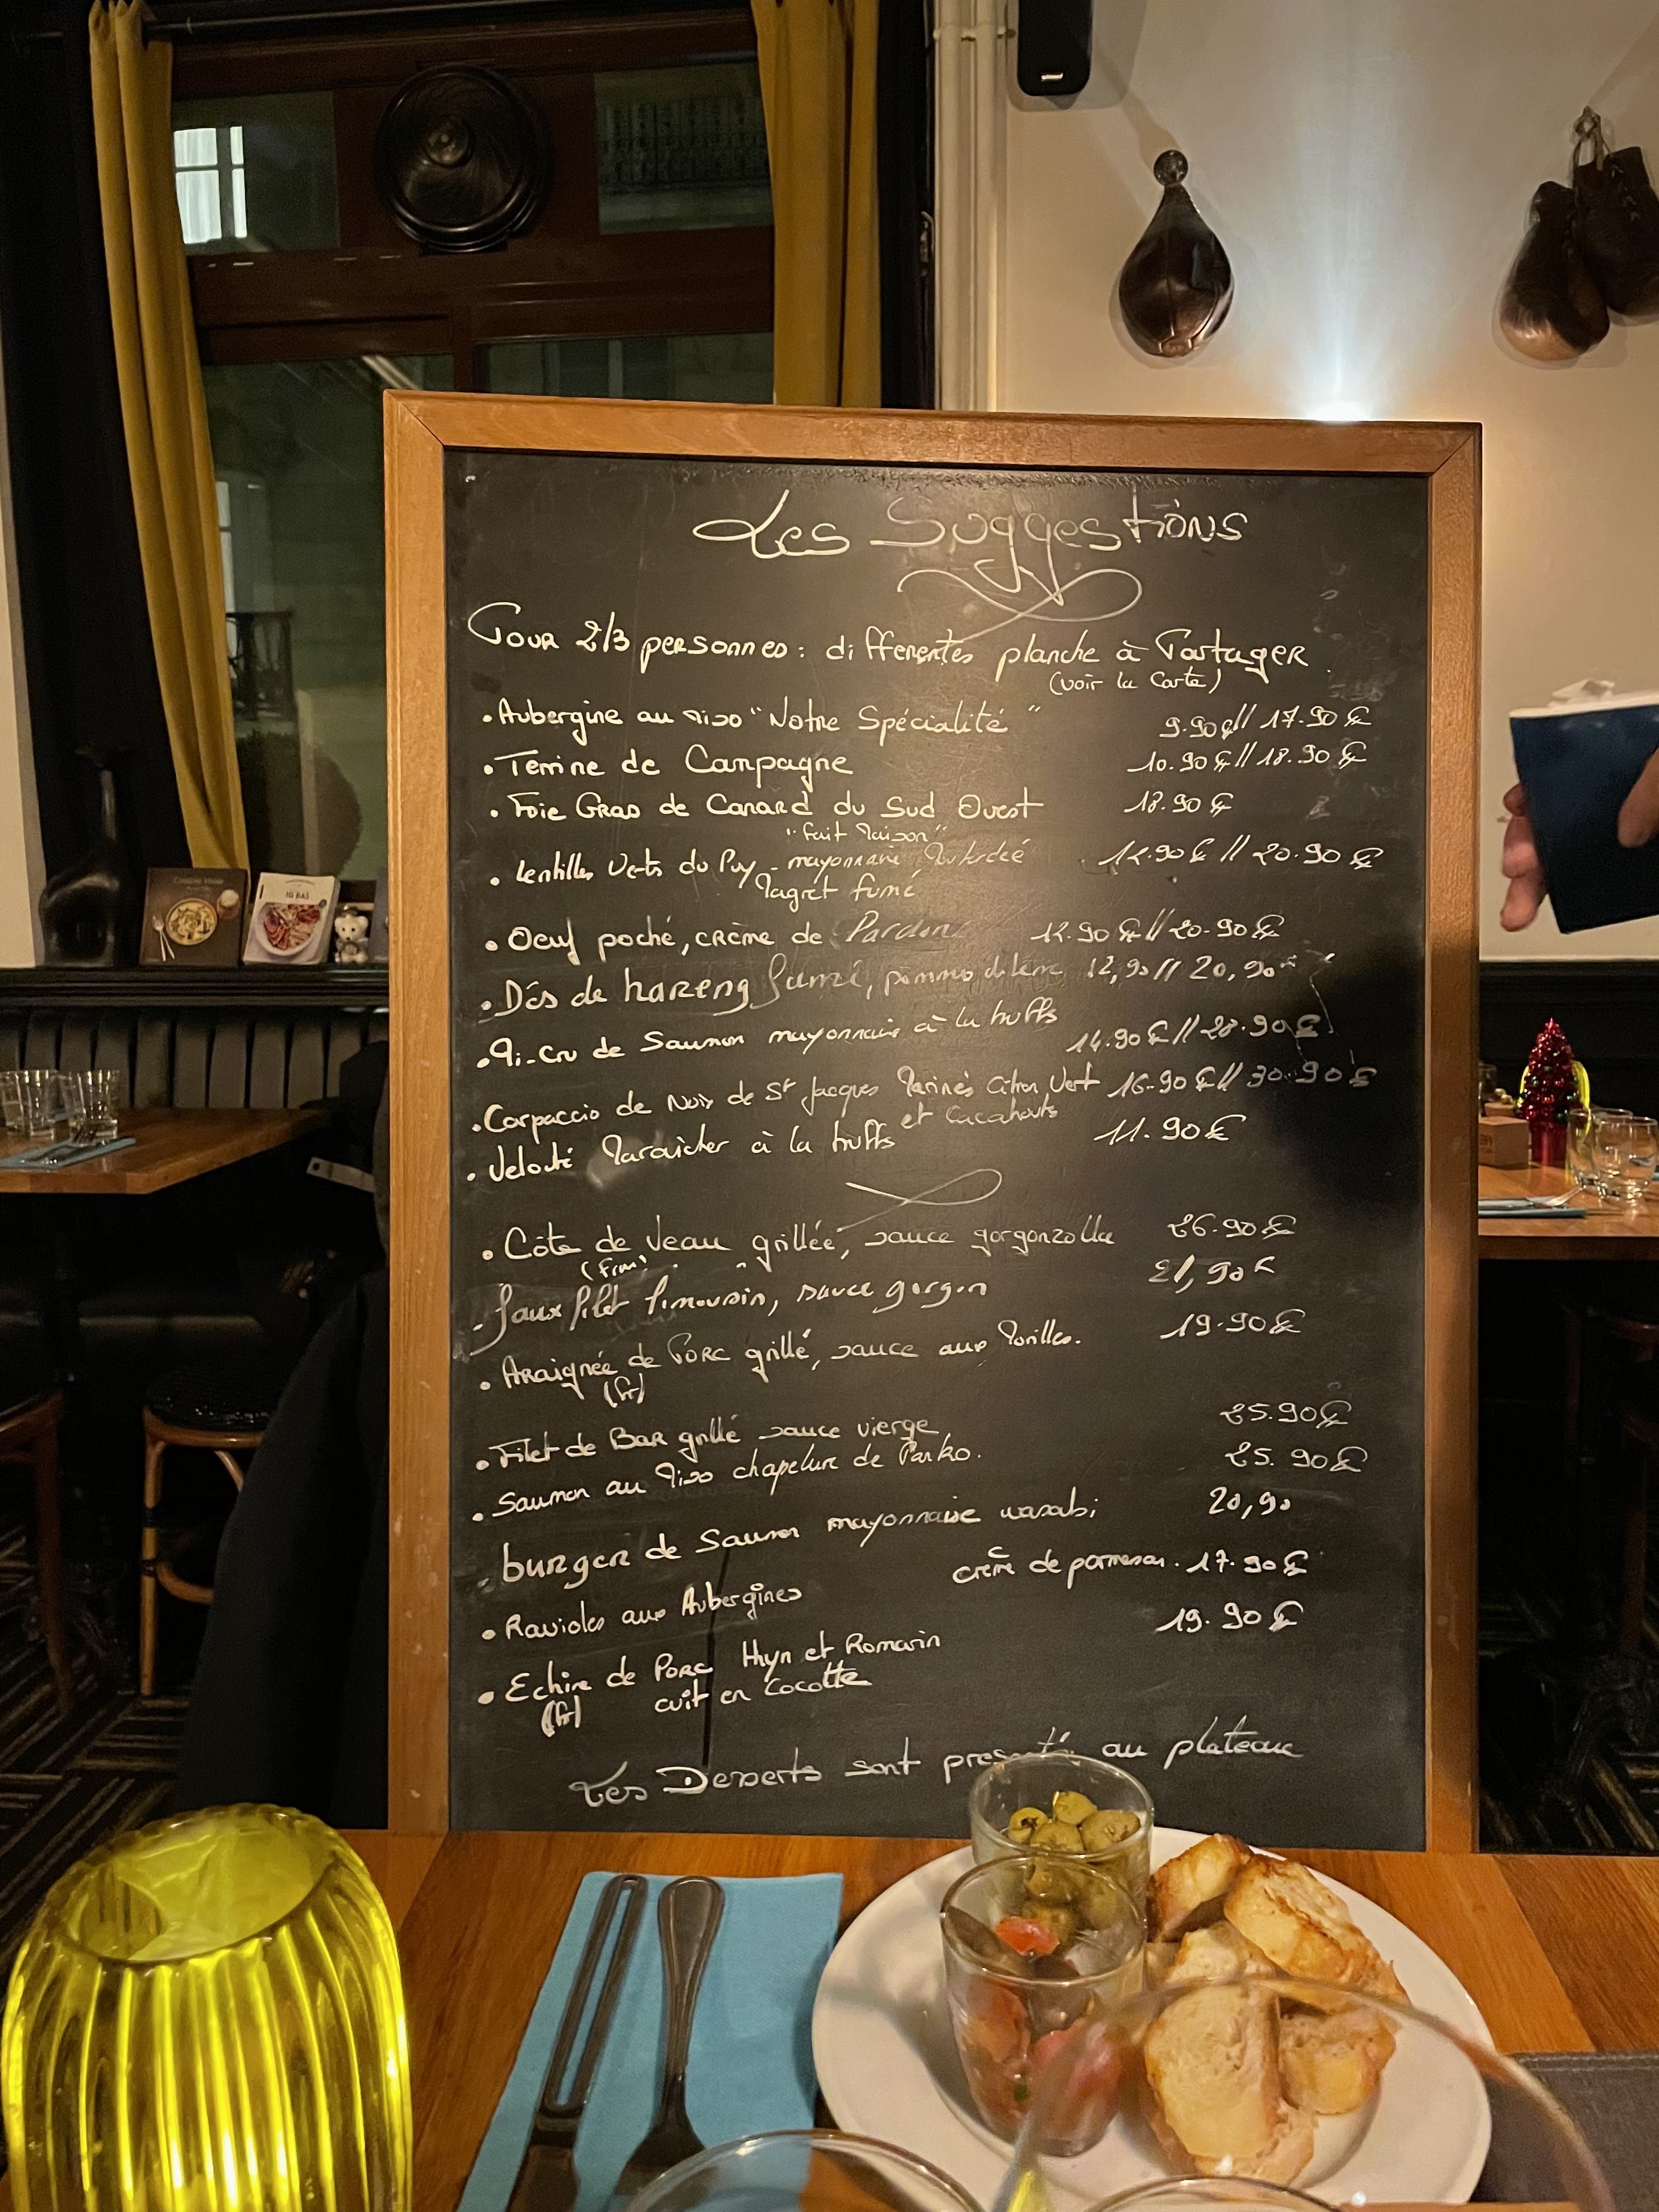 Les Suggestions
Pour 2/3 personnes : differentes planche à Partager
(voir la Carte)
• Aubergine au Miso "Notre Spécialité" 9.90€ // 17.90€
• Terrine de Campagne 10.90€ // 18.90€
• Foie Gras de Canard du Sud Ouest 18.90€
"fait Maison"
• Lentilles Verts du Puy - mayonnaise Moutardée 12.90€ // 20.90€
Magret fumé
• Oeuf poché, crème de 12.90€ // 20.90€
• Dés de hareng fumé, pomme de terre 12,90 // 20,90€
• Mi-cru de Saumon mayonnaise à la truffe 14.90€ // 28.90€
• Carpaccio de Noix de St Jacques Marinés Citron Vert 16.90€ // 30.90€
et Cacahouts
• Velouté Maraicher à la truffe 11.90€
• Côte de Veau grillée, sauce gorgonzolla 26.90€
- faux filet limousin, sauce gorgon 21,90€
• Araignée de Porc grillé, sauce aux Morilles. 19.90€
(fr)
• Filet de Bar grillé sauce vierge 25.90€
• Saumon au Miso chapelure de Panko. 25.90€
• burger de Saumon mayonnaise wasabi 20,90
• Ravioles aux Aubergines crème de parmesan. 17.90€
• Echine de Porc thyn et Romarin 19.90€
(fr) cuit en Cocotte
Les Desserts sont au plateau